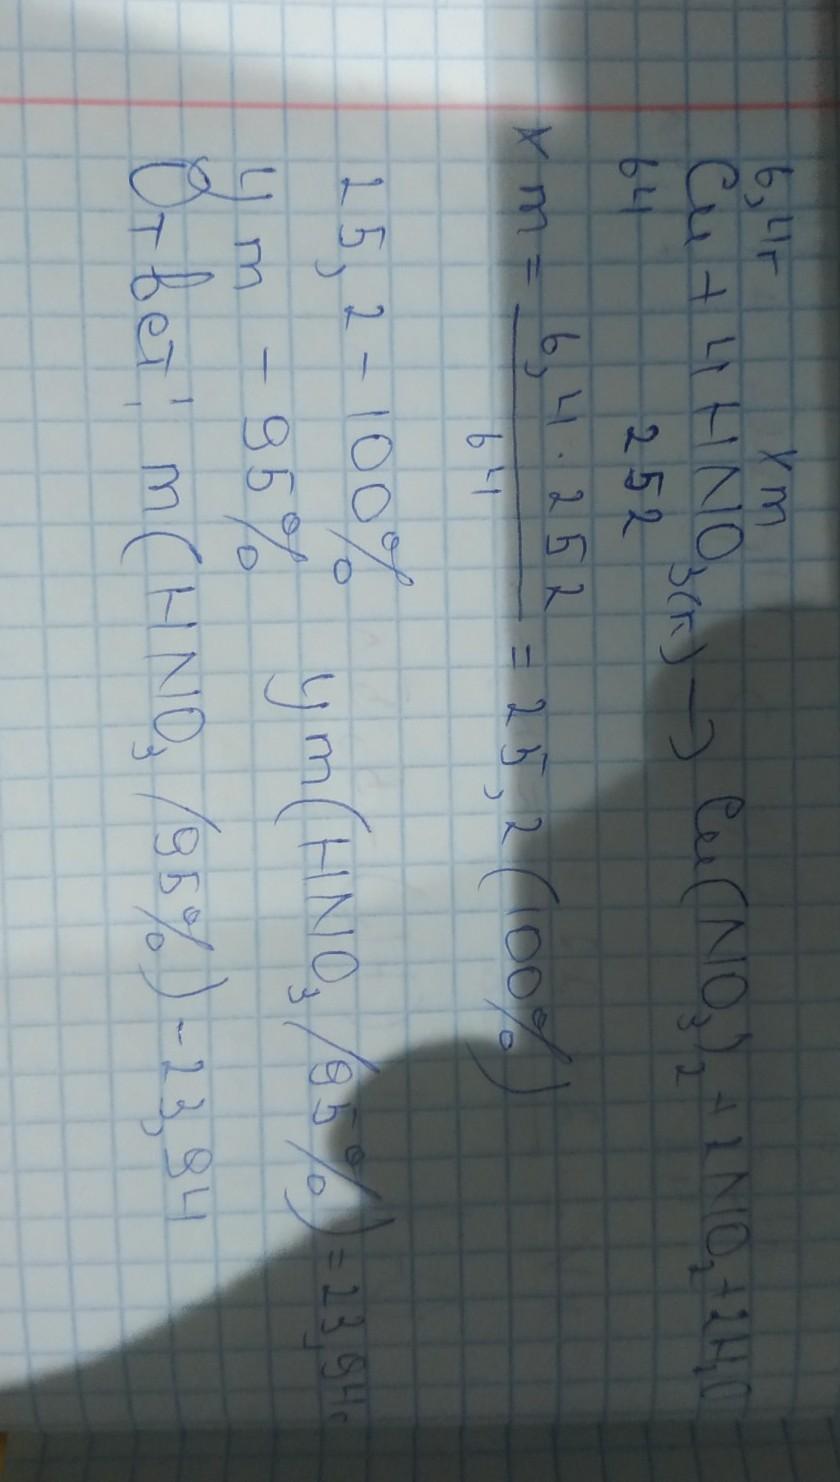 6,4г xm
Cu + 4HNO3(к) → Cu(NO3)2 + 2NO2 + 2H2O
64 252
xm = 6,4 · 252 / 64 = 25,2 (100%)
25,2 - 100%
ym - 95% ym(HNO3/95%) = 23,94г
Ответ: m(HNO3/95%) - 23,94